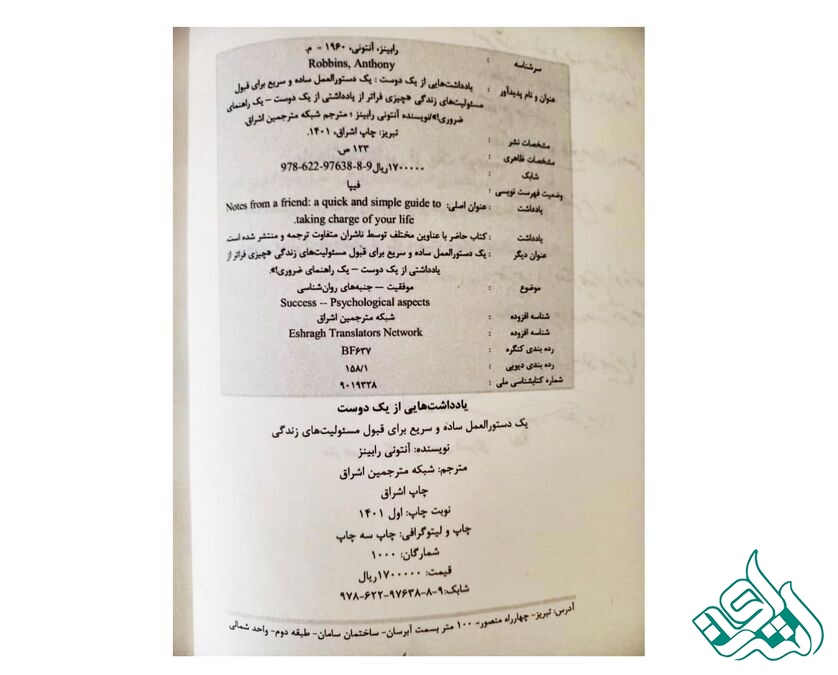 سرشناسه : رابینز، آنتونی، ۱۹۶۰ - م.
Robbins, Anthony
عنوان و نام پدیدآور : یادداشت‌هایی از یک دوست : یک دستورالعمل ساده و سریع برای قبول
مسئولیت‌های زندگی «چیزی فراتر از یادداشتی از یک دوست – یک راهنمای
ضروری!»/نویسنده آنتونی رابینز ؛ مترجم شبکه مترجمین اشراق.
مشخصات نشر : تبریز: چاپ اشراق، ۱۴۰۱.
مشخصات ظاهری : ۱۲۳ ص.
شابک : ۱۷۰۰۰۰۰ریال 978-622-97638-8-9
وضعیت فهرست نویسی : فیپا
یادداشت : عنوان اصلی: Notes from a friend: a quick and simple guide to
taking charge of your life.
یادداشت : کتاب حاضر با عناوین مختلف توسط ناشران متفاوت ترجمه و منتشر شده است.
عنوان دیگر : یک دستورالعمل ساده و سریع برای قبول مسئولیت‌های زندگی «چیزی فراتر از
یادداشتی از یک دوست – یک راهنمای ضروری!».
موضوع : موفقیت -- جنبه‌های روان‌شناسی
Success -- Psychological aspects
شناسه افزوده : شبکه مترجمین اشراق
شناسه افزوده : Eshragh Translators Network
رده بندی کنگره : BF۶۳۷
رده بندی دیویی : ۱۵۸/۱
شماره کتابشناسی ملی : ۹۰۱۹۳۲۸
یادداشت‌هایی از یک دوست
یک دستورالعمل ساده و سریع برای قبول مسئولیت‌های زندگی
نویسنده: آنتونی رابینز
مترجم: شبکه مترجمین اشراق
چاپ اشراق
نوبت چاپ: اول ۱۴۰۱
چاپ و لیتوگرافی: چاپ سه چاپ
شمارگان: ۱۰۰۰
قیمت: ۱۷۰۰۰۰۰ریال
شابک:۹-۸-۹۷۶۳۸-۶۲۲-۹۷۸
آدرس: تبریز- چهارراه منصور- ۱۰۰ متر بسمت آبرسان- ساختمان سامان- طبقه دوم- واحد شمالی